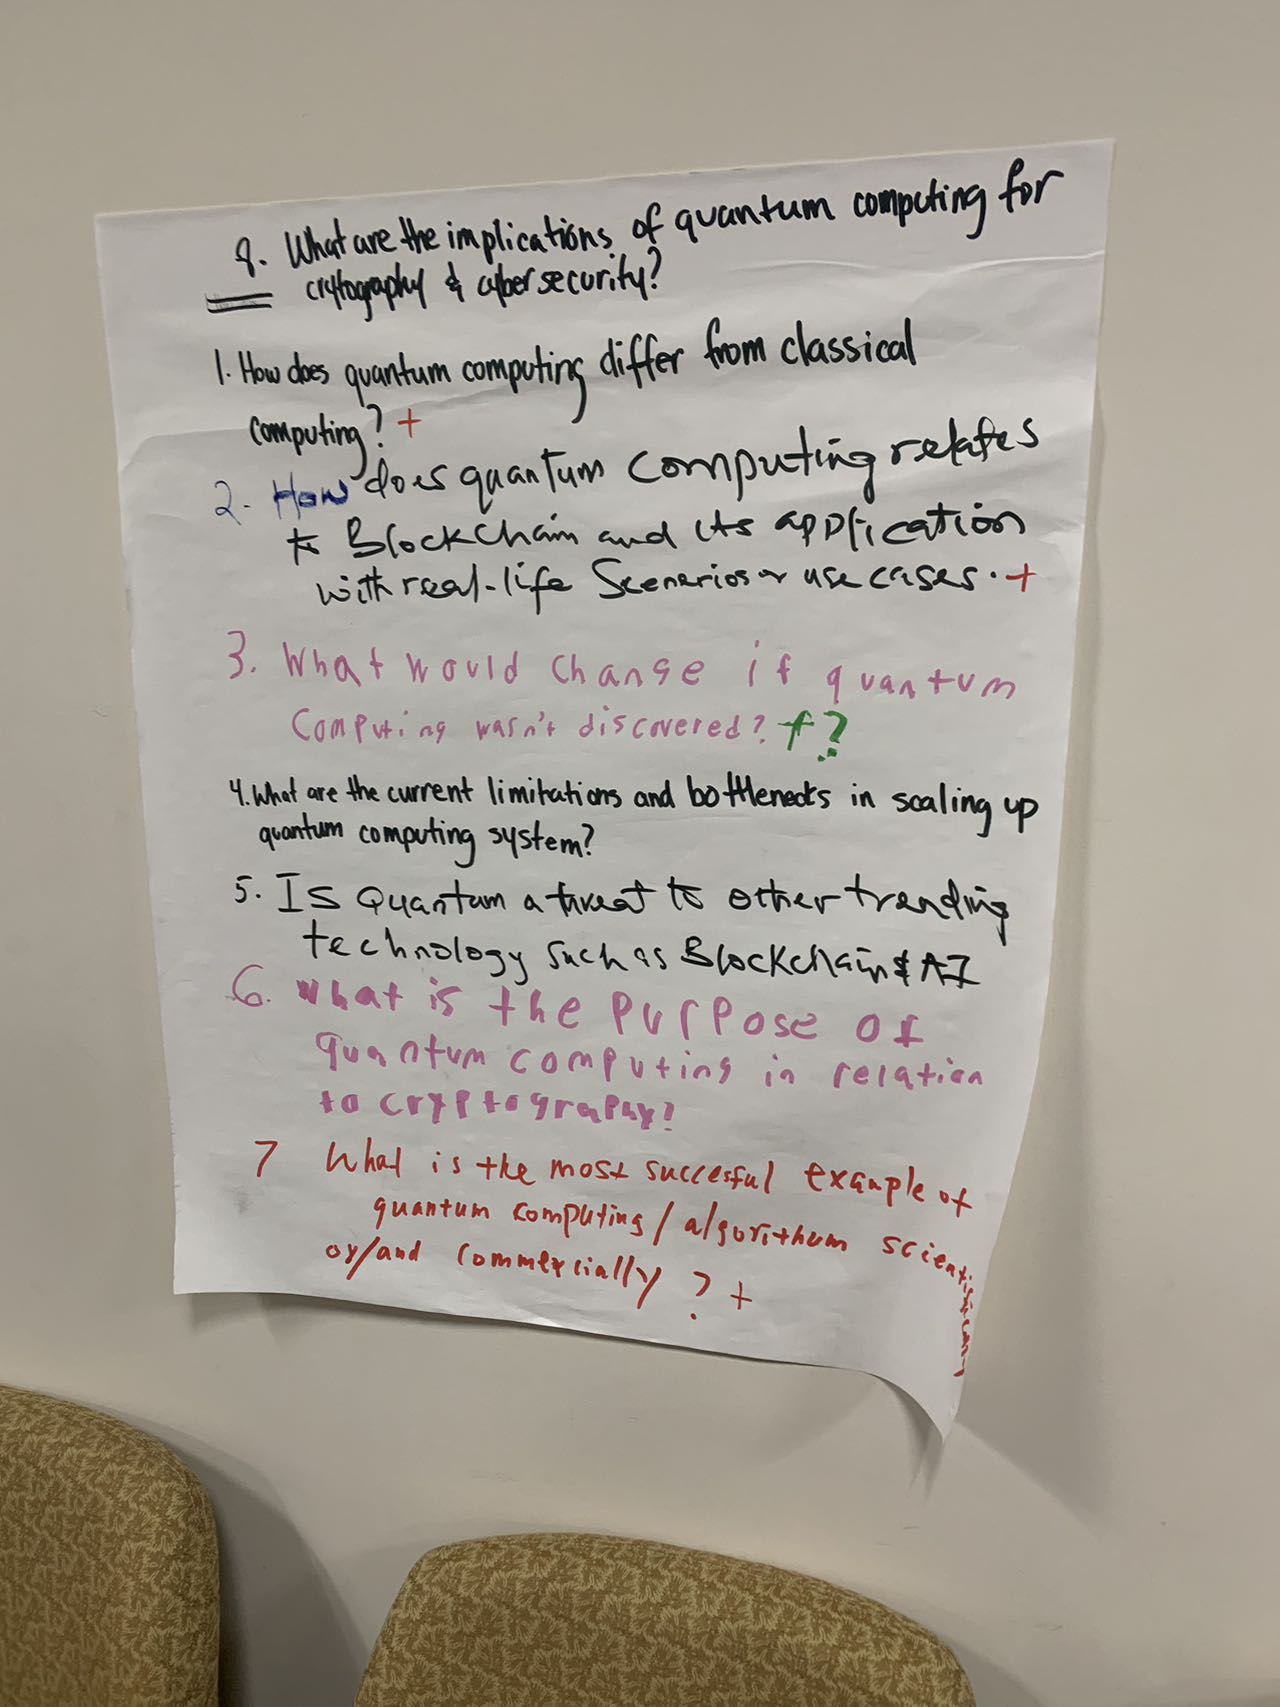 8. What are the implications of quantum computing for
crytography & cybersecurity?
1. How does quantum computing differ from classical
computing? +
2. How does quantum computing relates
to Blockchain and its application
with real-life Scenarios or use cases. +
3. What would change if quantum
computing wasn't discovered? +?
4. What are the current limitations and bottlenecks in scaling up
quantum computing system?
5. Is Quantum a threat to other trending
technology such as Blockchain & AI
6. What is the purpose of
quantum computing in relation
to cryptography?
7 What is the most succesful example of
quantum computing / algorithum scientifically
or/and commercially ? +